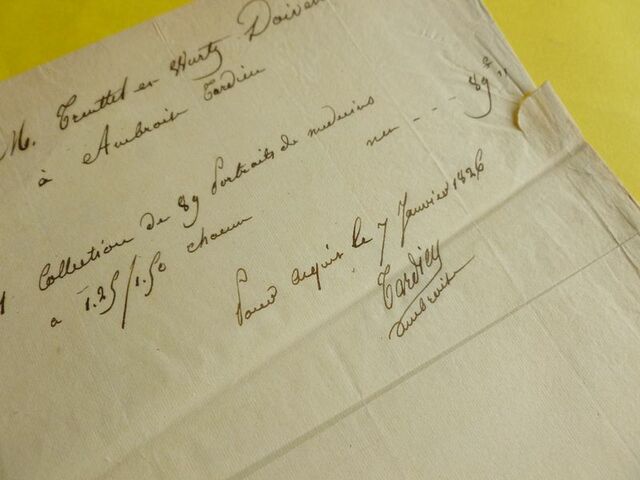 M. Treuttel et Wurtz Doivent
à Ambroise Tardieu
1 Collection de 89 Portraits de médecins
a 1.25/1.50 chacun net - - - 89 f "
Pour acquit le 7 Janvier 1826
Tardieu
Ambroise